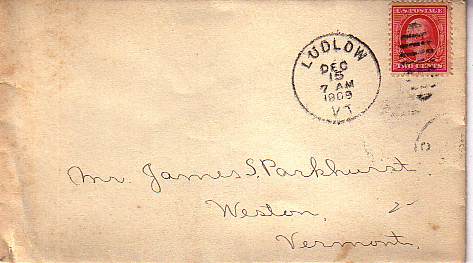 U.S. POSTAGE
TWO CENTS
LUDLOW
DEC
15
7 AM
1909
VT
Mr. James S. Parkhurst.
Weston,
Vermont.